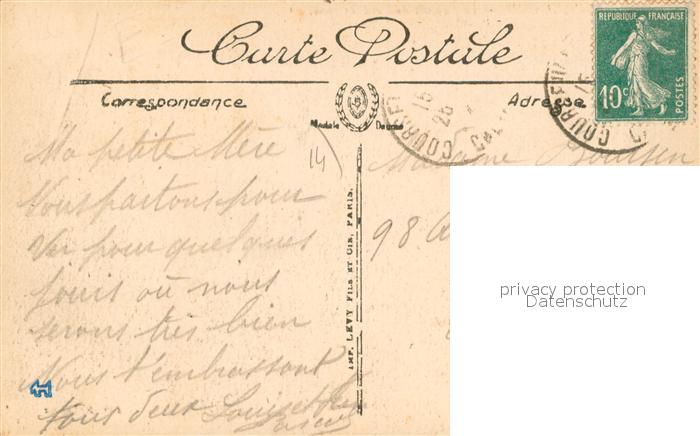 Carte Postale
Correspondance
Adresse
REPUBLIQUE FRANÇAISE
10c
POSTES
COURSEU
15
25
Modèle Déposé
14
Ma petite Mère
Nous partons pour
Ver pour quelques
jours où nous
serons très bien
Nous t'embrassons
tous deux Louise
Madame
98
IMP. LEVY FILS ET CIE, PARIS.
privacy protection
Datenschutz